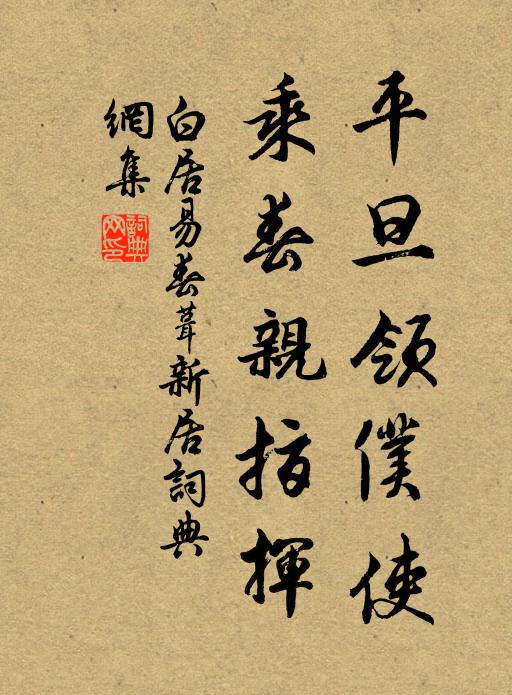 平旦領僕使
乘春親指揮
白居易春葺新居詞典
網集
詞典
网印